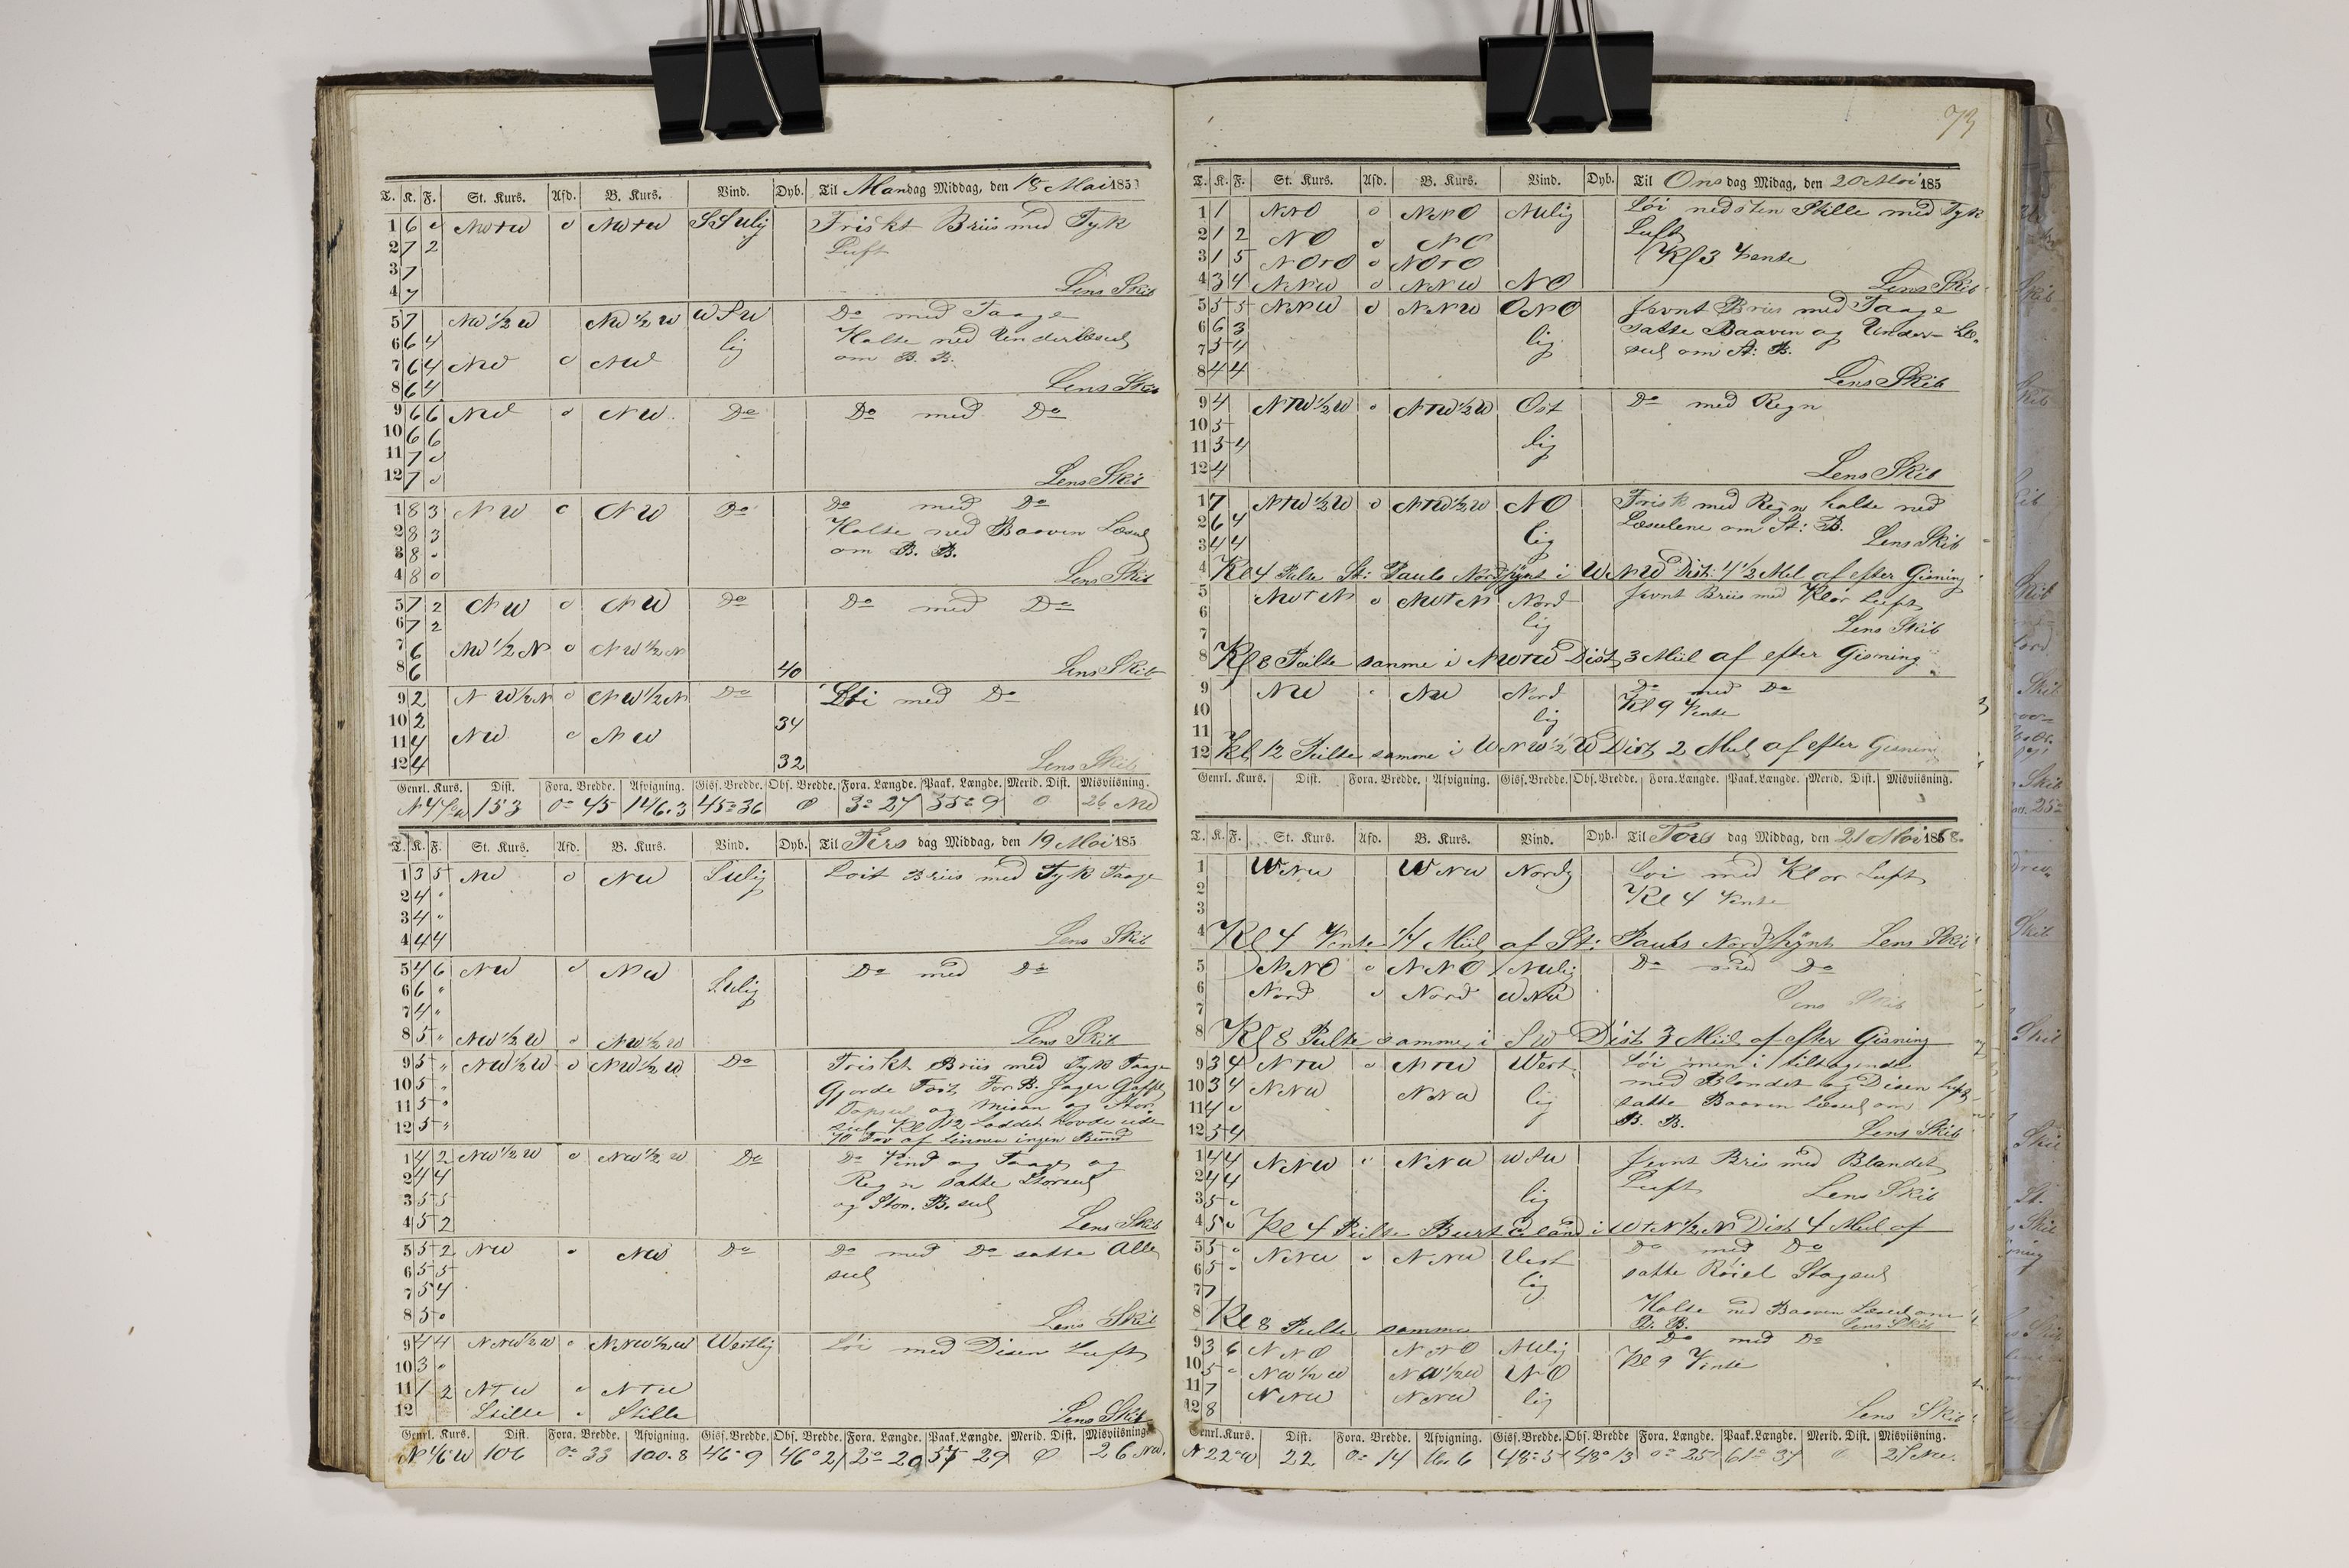 73
T. K. F. St. Kurs. Afd. B. Kurs. Vind. Dyb. Til Mandag Middag, den 18 Mai 185
1 6 o NW+W o NW+W SSWlig Friskt Briis med Tyk
2 7 2 Luft
3 7
4 7 Lens Skib
5 7 NW 1/2 W NW 1/2 W WSW Do med Taage
6 6 4 lig Halte ned Underlæseil
7 6 4 NW o NW om B. B.
8 6 4 Lens Skib
9 6 6 NW o NW Do Do med Do
10 6 6
11 7 o
12 7 o Lens Skib
1 8 3 NW o NW Do Do med Do
2 8 3 Halte ned Baaven Læseil
3 8 om B. B.
4 8 o Lens Skib
5 7 2 NW o NW Do Do med Do
6 7 2
7 6 NW 1/2 N o NW 1/2 N
8 6 40 Lens Skib
9 2 NW 1/2 N o NW 1/2 N Do Löi med Do
10 2 34
11 4 NW o NW
12 4 32 Lens Skib
Genrl. Kurs. Dist. Fora. Bredde. Afvigning. Gisf. Bredde. Obs. Bredde. Fora. Længde. Paak. Længde. Merid. Dist. Misviisning.
153 0° 45 146.3 45° 36 0 3° 27 0 26 NW
T. K. F. St. Kurs. Afd. B. Kurs. Vind. Dyb. Til Tirsdag Middag, den 19 Mai 185
1 3 5 NW o NW SWlig Löit Briis med Tyk Taage
2 4 "
3 4 "
4 4 4 Lens Skib
5 4 6 NW o NW Do med Do
6 6 " SWlig
7 4 "
8 5 " NW 1/2 W o NW 1/2 W Lens Skib
9 5 " NW 1/2 W o NW 1/2 W Do Friskt Briis med Tyk Taage
10 5 " Gjorde Fast For B. Jager Gaffel
11 5 " Topseil og Misan og Stor
12 5 " seil Kl 12 Loddet havde ude
70 Fav af Linnen ingen Bund
1 4 2 NW 1/2 W o NW 1/2 W Do Do Vind og Taage og
2 4 4 Regn satte Storseil
3 5 5 og Stor. B. seil
4 5 2 Lens Skib
5 5 2 NW o NW Do Do med Do satte Alle
6 5 5 seil
7 5 4
8 5 o Lens Skib
9 4 4 NNW 1/2 W o NNW 1/2 W Westlig Löi med Disen Luft
10 3 o
11 1 2 N+W o N+W
12 Stille Stille Lens Skib
Genrl. Kurs. Dist. Fora. Bredde. Afvigning. Gisf. Bredde. Obs. Bredde. Fora. Længde. Paak. Længde. Merid. Dist. Misviisning.
106 0° 33 100.8 46° 9 46° 21 2° 20 0 26 NW.
T. K. F. St. Kurs. Afd. B. Kurs. Vind. Dyb. Til Onsdag Midag, den 20 Mai 185
1 1 NNO o NNO NWlig Löi nedsten Stille med Tyk
2 1 2 NO o NO Luft
3 1 5 NO+O o NO+O Kl 3 Vente
4 3 4 NNW o NNW NO Lens Skib
5 5 5 NNW o NNW ONO Jevnt Briis med Taage
6 6 3 lig satte Baaven og Under-Læ-
7 5 4 seil om St: B.
8 4 4 Lens Skib
9 4 N+W 1/2 W o N+W 1/2 W Ost Do med Regn
10 5
11 5 4 lig
12 4 Lens Skib
1 7 N+W 1/2 W o N+W 1/2 W NO Frisk med Regn halte ned
2 6 4 Læseilene om St: B.
3 4 4 lig Lens Skib
4 Kl 4 Peilte St: Pauls Nordpynt i WNW Dist: 4 1/2 Mil af efter Gisning
5 NW+N o NW+N Nord Jevnt Briis med Klar Luft
6 lig
7 Lens Skib
8 Kl 8 Peilte samme i NW+W Dist 3 Miil af efter Gisning
9 NW NW Nord Do med Do
10 lig Kl 9 Vente
11
12 Kl 12 Peilte samme i WNW 1/2 W Dist 2 Miil af efter Gisning
Genrl. Kurs. Dist. Fora. Bredde. Afvigning. Gisf. Bredde. Obs. Bredde. Fora. Længde. Paak. Længde. Merid. Dist. Misviisning.
T. K. F. St. Kurs. Afd. B. Kurs. Vind. Dyb. Til Torsdag Middag, den 21 Mai 1858.
1 WNW WNW Nordlig Löi med Klar Luft
2 Kl 4 Vente
3
4 Kl 4 Vente 1/4 Miil af St: Pauls Nordpynt Lens Skib
5 NNO o NNO NWlig Do med Do
6 Nord o Nord WNW
7 Lens Skib
8 Kl 8 Peilte samme i SW Dist 3 Miil af efter Gisning
9 3 4 N+W N+W West Löi men i tiltagende
10 3 4 NNW NNW lig med Blandet og Disen Luft
11 4 o satte Baaven Læseil om
12 5 4 B. B. Lens Skib
1 4 4 NNW NNW WSW Jevnt Bris med Blandet
2 4 4 Luft
3 5 o lig Lens Skib
4 5 o Kl 4 Peilte i W+N 1/2 N Dist 4 Miil af
5 5 o NNW NNW Vest Do med Do
6 5 lig satte Röiel Stagseil
7 7 Halte ned Baaven Læseil om
8 Kl 8 Peilte samme B. B. Lens Skib
9 3 6 NNO NNO NWlig Do med Do
10 5 o NW 1/2 W NW 1/2 W NO Kl 9 Vente
11 7 NNW NNW lig
12 8 Lens Skib
Genrl. Kurs. Dist Fora. Bredde. Afvigning. Gisf. Bredde. Obs. Bredde Fora. Længde. Paak. Længde. Merid. Dist. Misviisning.
N 22° W 22 0° 14 48° 13 0° 25 61° 37 0 27 NW.